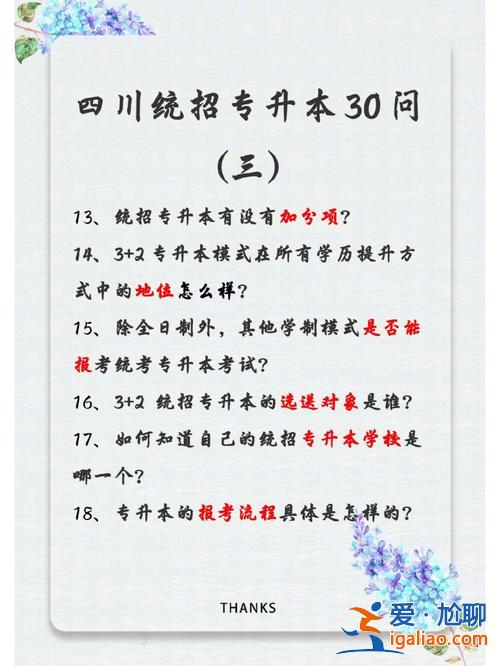 四川统招专升本30问
（三）
13、统招专升本有没有加分项？
14、3+2专升本模式在所有学历提升方
式中的地位怎么样？
15、除全日制外，其他学制模式是否能
报考统考专升本考试？
16、3+2 统招专升本的选送对象是谁？
17、如何知道自己的统招专升本学校是
哪一个？
18、专升本的报考流程具体是怎样的？
THANKS
爱·尬聊
igaliao.com